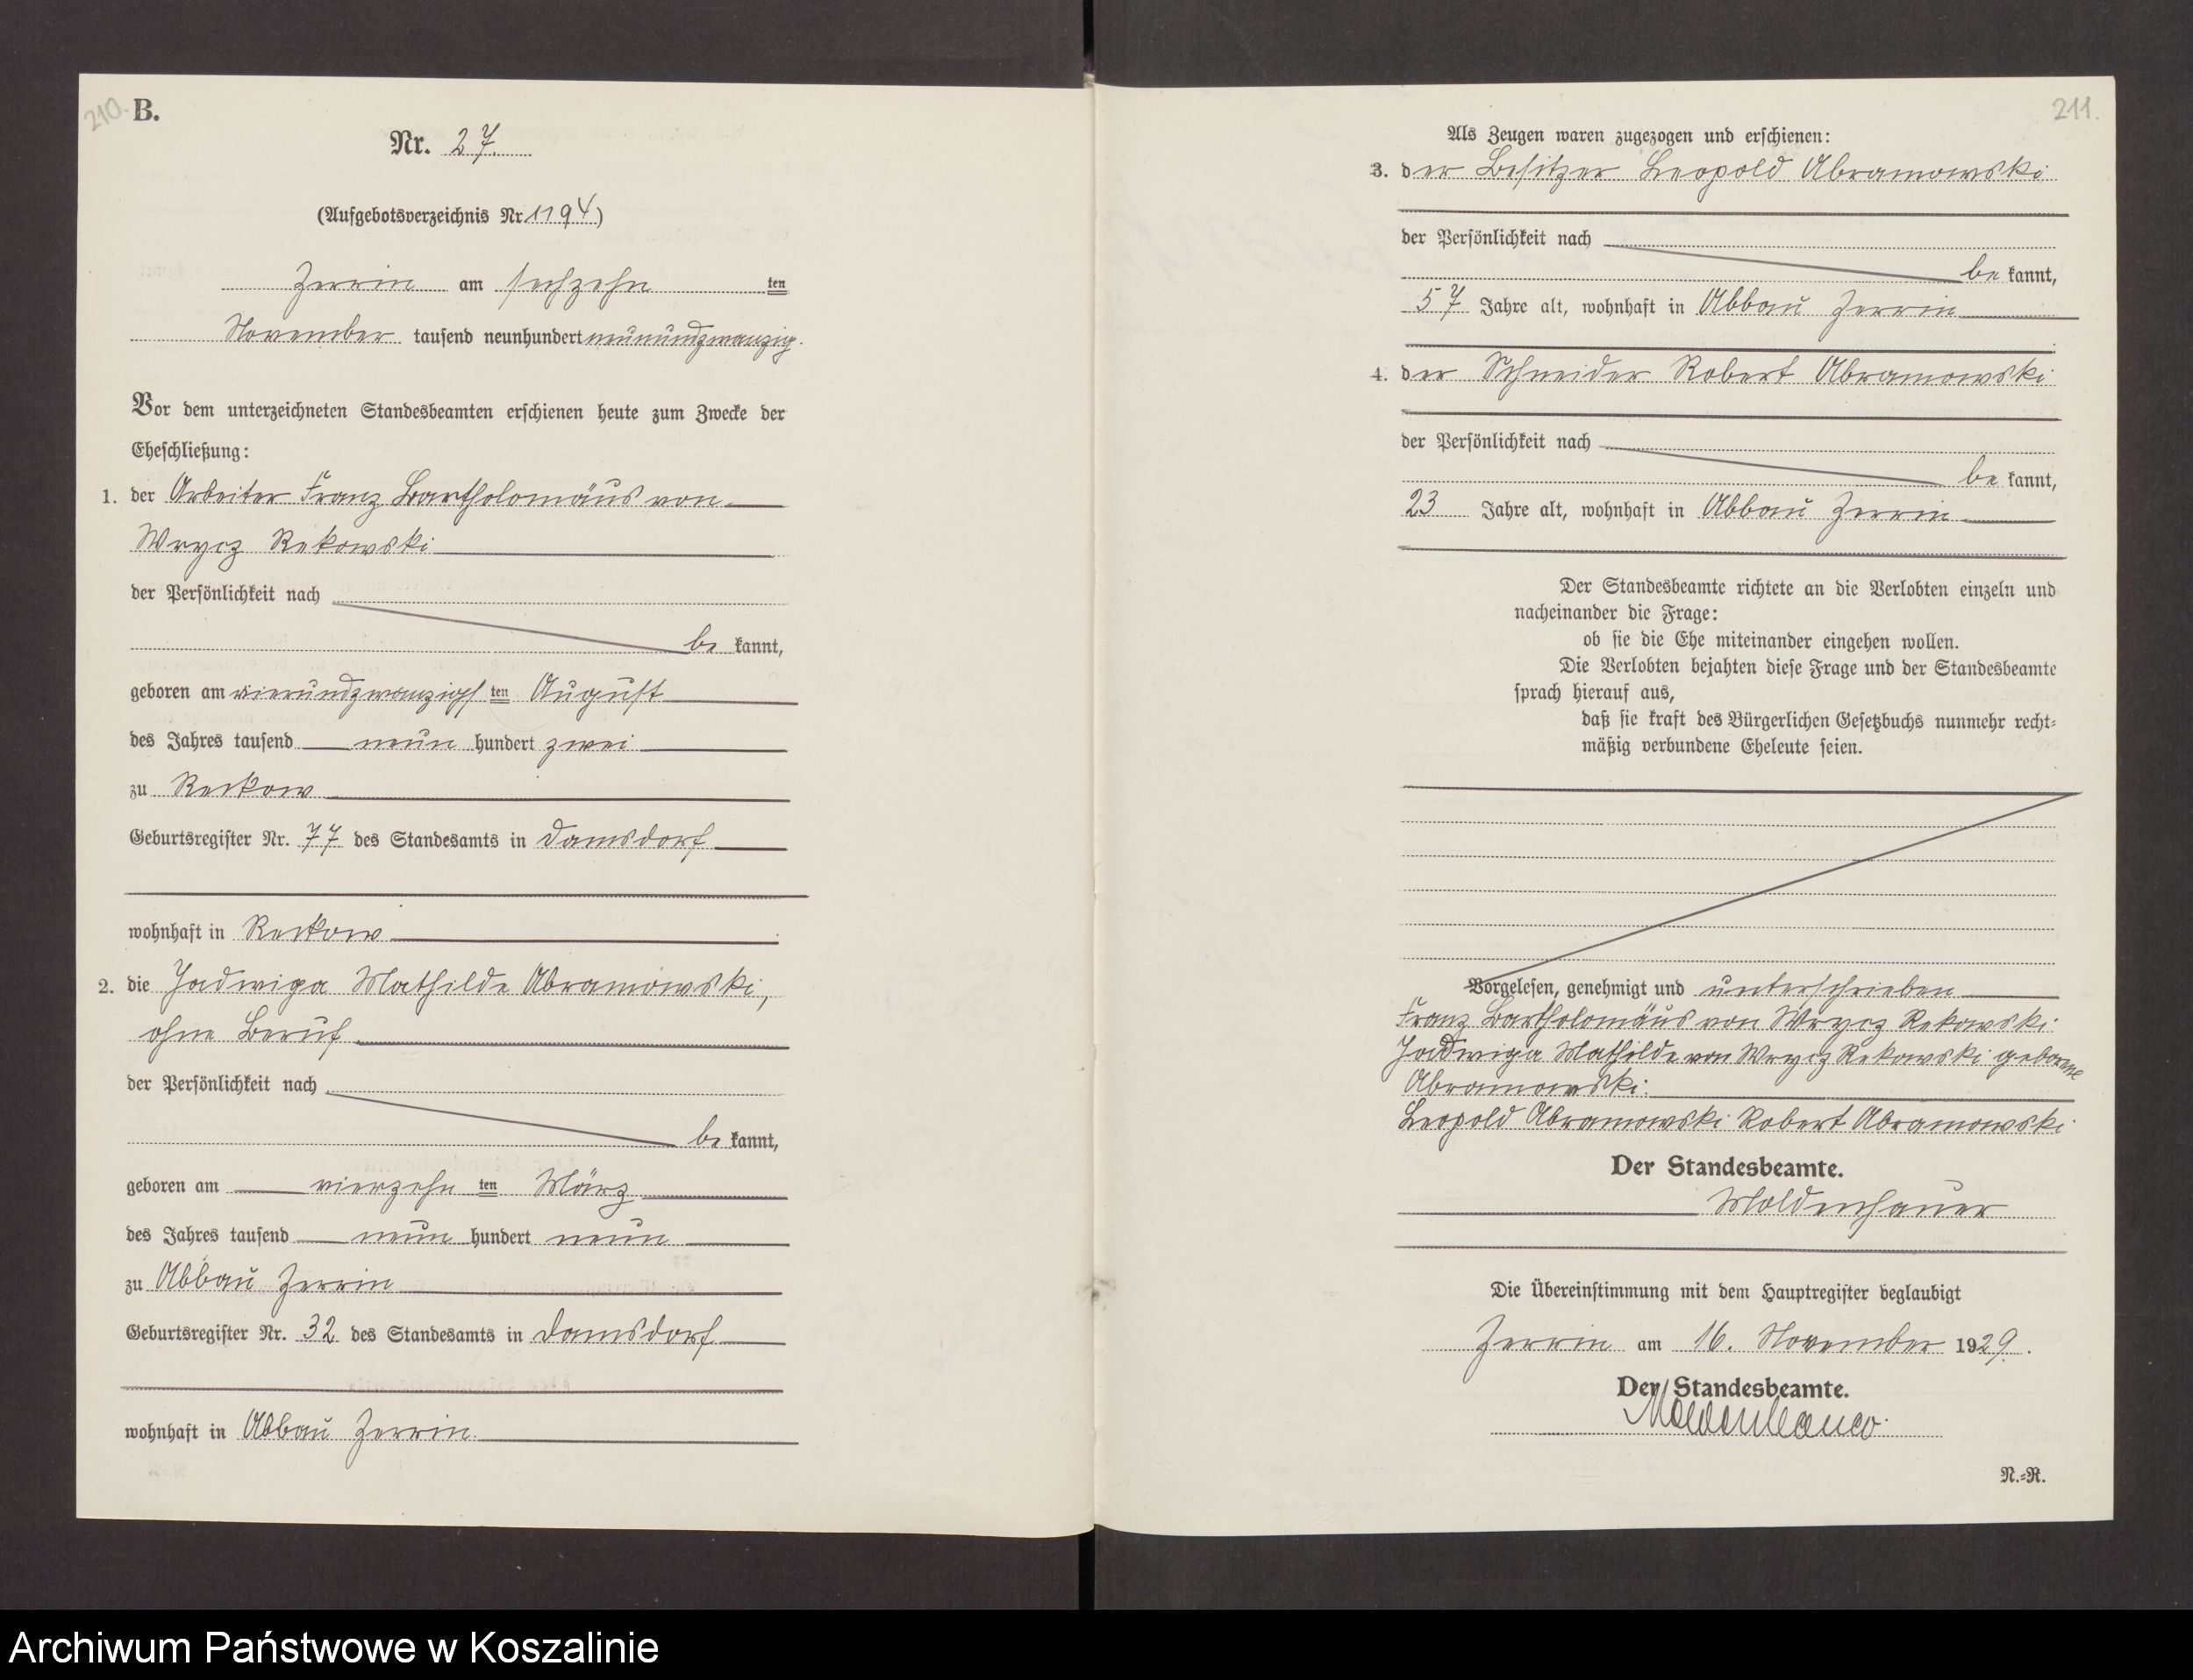 210.
B.
Nr. 27.
(Aufgebotsverzeichnis Nr. 1194)
Zerrin am sechzehn ten
November tausend neunhundert neunundzwanzig.
Vor dem unterzeichneten Standesbeamten erschienen heute zum Zwecke der
Eheschließung:
1. der Arbeiter Franz Bartholomäus von
Wrycz Rekowski
der Persönlichkeit nach
be kannt,
geboren am vierundzwanzigs ten August
des Jahres tausend neun hundert zwei
zu Reckow
Geburtsregister Nr. 77 des Standesamts in Damsdorf
wohnhaft in Reckow
2. die Jadwiga Mathilde Abramowski,
ohne Beruf
der Persönlichkeit nach
be kannt,
geboren am vierzehn ten März
des Jahres tausend neun hundert neun
zu Abbau Zerrin
Geburtsregister Nr. 32 des Standesamts in Damsdorf
wohnhaft in Abbau Zerrin.
211.
Als Zeugen waren zugezogen und erschienen:
3. der Besitzer Leopold Abramowski
der Persönlichkeit nach
be kannt,
57 Jahre alt, wohnhaft in Abbau Zerrin
4. der Schneider Robert Abramowski
der Persönlichkeit nach
be kannt,
23 Jahre alt, wohnhaft in Abbau Zerrin
Der Standesbeamte richtete an die Verlobten einzeln und
nacheinander die Frage:
ob sie die Ehe miteinander eingehen wollen.
Die Verlobten bejahten diese Frage und der Standesbeamte
sprach hierauf aus,
daß sie kraft des Bürgerlichen Gesetzbuchs nunmehr recht-
mäßig verbundene Eheleute seien.
Vorgelesen, genehmigt und unterschrieben
Franz Bartholomäus von Wrycz Rekowski.
Jadwiga Mathilde von Wrycz Rekowski geborene
Abramowski.
Leopold Abramowski Robert Abramowski.
Der Standesbeamte.
Moldenhauer
Die Übereinstimmung mit dem Hauptregister beglaubigt
Zerrin am 16. November 1929.
Der Standesbeamte.
Moldenhauer.
N.-R.
Archiwum Państwowe w Koszalinie